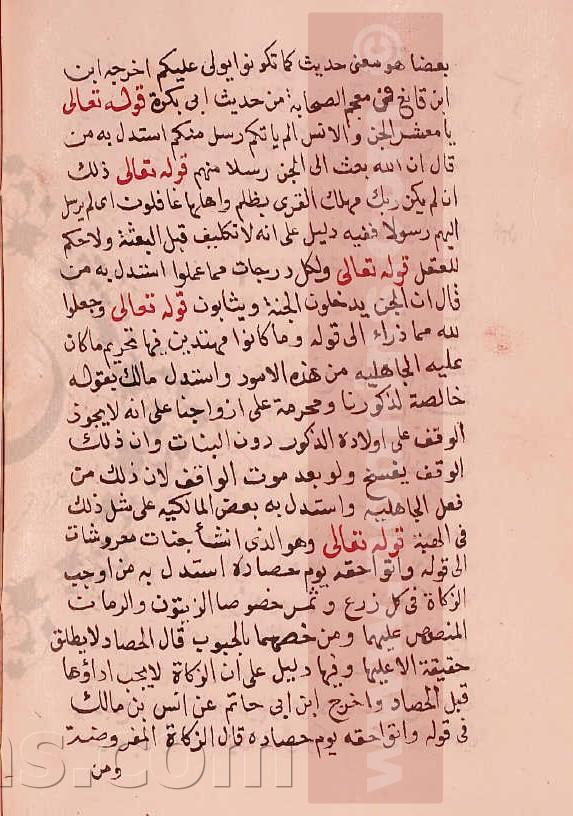 بعضا هو معنى حديث كما تكونوا يولى عليكم اخرجه ابن
ابن قانع فى معجم الصحابة من حديث ابى بكرة قوله تعالى
يا معشر الجن والانس الم ياتكم رسل منكم استدل به من
قال ان الله بعث الى الجن رسلا منهم قوله تعالى ذلك
ان لم يكن ربك مهلك القرى بظلم واهلها غافلون اى لم يرسل
اليهم رسولا ففيه دليل على انه لا تكليف قبل البعثة ولا حكم
للعقل قوله تعالى ولكل درجات مما عملوا استدل به من
قال ان الجن يدخلون الجنة ويثابون قوله تعالى وجعلوا
لله مما ذراء الى قوله وما كانوا مهتدين فيها تحريم ما كان
عليه الجاهليه من هذه الامور واستدل مالك بقوله
خالصة لذكورنا ومحرمة على ازواجنا على انه لا يجوز
الوقف على اولاده الذكور دون البنات وان ذلك
الوقف يفسخ ولو بعد موت الواقف لان ذلك من
فعل الجاهليه واستدل به بعض المالكيه على مثل ذلك
فى الهبة قوله تعالى وهو الذى انشأ جنات معروشات
الى قوله واتوا حقه يوم حصاده استدل به من اوجب
الزكاة فى كل زرع وثمر خصوصا الزيتون والرمان
المنصوص عليهما ومن خصهما بالحبوب قال الحصاد لا يطلق
حقيقة الا عليها وفيها دليل على ان الزكاة لا يجب اداؤها
قبل الحصاد واخرج ابن ابى حاتم عن انس بن مالك
فى قوله واتوا حقه يوم حصاده قال الزكاة المفروضة
ومن